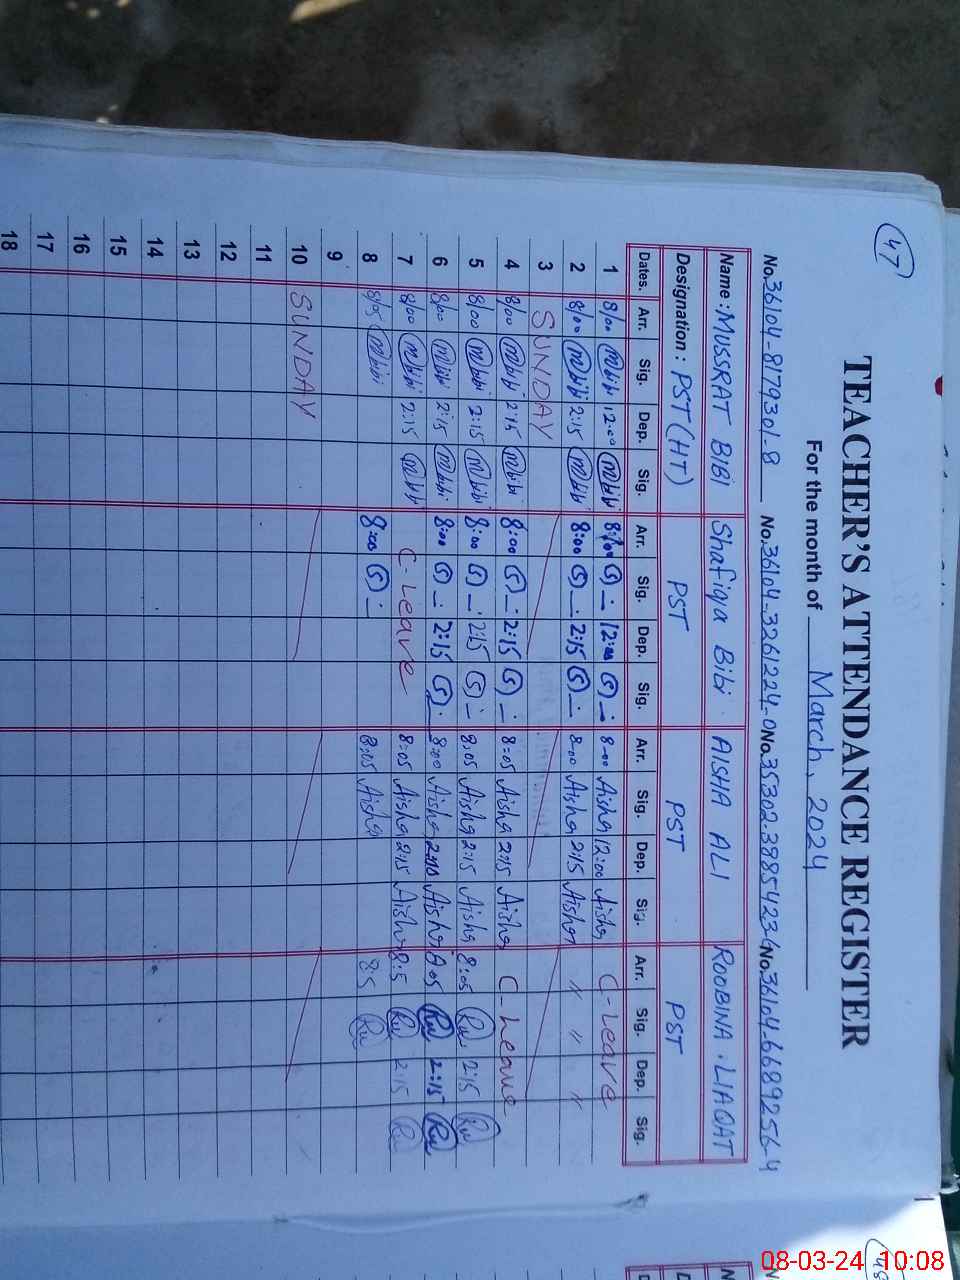 47
TEACHER'S ATTENDANCE REGISTER
For the month of March, 2024
No.36104-8179301-8 No.36104-3261224-0 No.35302-3985423-4 No.36104-6689256-4
Name : MUSSRAT BIBI Shafiqa Bibi. AISHA ALI ROOBINA. LIAQAT
Designation : PST (HT) PST PST PST
Dates. Arr. Sig. Dep. Sig. Arr. Sig. Dep. Sig. Arr. Sig. Dep. Sig. Arr. Sig. Dep. Sig.
1 8/00 Mbibi 12:00 Mbibi 8:00 (S) 12:00 (S) 8-00 Aisha 12:00 Aisha C-Leave
2 8/00 Mbibi 2:15 Mbibi 8:00 (S) 2:15 (S) 8-00 Aisha 2:15 Aisha " " "
3 SUNDAY
4 8/00 Mbibi 2:15 Mbibi 8:00 (S) 2:15 (S) 8:05 Aisha 2:15 Aisha C-Leave
5 8/00 Mbibi 2:15 Mbibi 8:00 (S) 2:15 (S) 8:05 Aisha 2:15 Aisha 8:05 Ru 2:15 Ru
6 8/00 Mbibi 2:15 Mbibi 8:00 (S) 2:15 (S) 8:00 Aisha Aisha Ru 2:15 Ru
7 8/00 Mbibi 2:15 Mbibi C-Leave 8:05 Aisha 2:15 Aisha 8:5 Ru 2:15 Ru
8 8/05 Mbibi 8:00 (S) 8:05 Aisha 8:5 Ru
9
10 SUNDAY
11
12
13
14
15
16
17
18
08-03-24 10:08